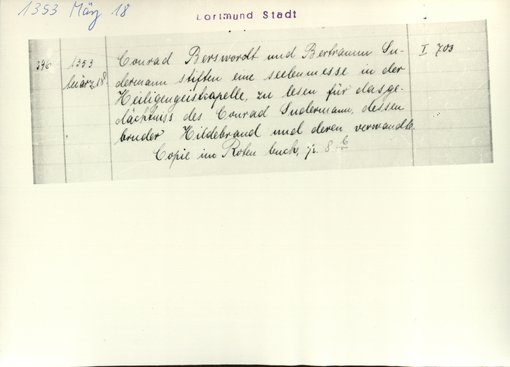 1353 März 18
Dortmund Stadt
246 1353 Conrad Berswordt und Bertramm Su- I 703
märz 18. dermann stiften eine seelenmesse in der
Heiligengeistkapelle, zu lesen für das ge-
dächtniss des Conrad Sudermann, dessen
bruder Hildebrand und deren verwandte.
Copie im Roten buch, p. 8 b